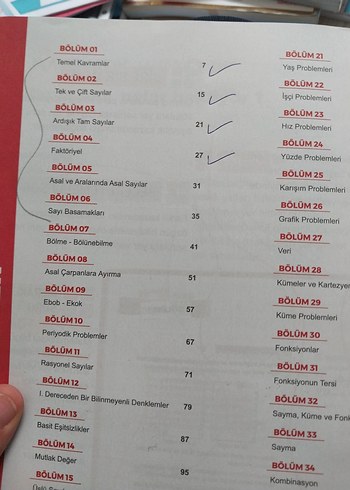 BÖLÜM 01
Temel Kavramlar 7
BÖLÜM 02
Tek ve Çift Sayılar 15
BÖLÜM 03
Ardışık Tam Sayılar 21
BÖLÜM 04
Faktöriyel 27
BÖLÜM 05
Asal ve Aralarında Asal Sayılar 31
BÖLÜM 06
Sayı Basamakları 35
BÖLÜM 07
Bölme - Bölünebilme 41
BÖLÜM 08
Asal Çarpanlara Ayırma 51
BÖLÜM 09
Ebob - Ekok 57
BÖLÜM 10
Periyodik Problemler 67
BÖLÜM 11
Rasyonel Sayılar 71
BÖLÜM 12
I. Dereceden Bir Bilinmeyenli Denklemler 79
BÖLÜM 13
Basit Eşitsizlikler 87
BÖLÜM 14
Mutlak Değer 95
BÖLÜM 15
BÖLÜM 21
Yaş Problemleri
BÖLÜM 22
İşçi Problemleri
BÖLÜM 23
Hız Problemleri
BÖLÜM 24
Yüzde Problemleri
BÖLÜM 25
Karışım Problemleri
BÖLÜM 26
Grafik Problemleri
BÖLÜM 27
Veri
BÖLÜM 28
Kümeler ve Kartezyen
BÖLÜM 29
Küme Problemleri
BÖLÜM 30
Fonksiyonlar
BÖLÜM 31
Fonksiyonun Tersi
BÖLÜM 32
Sayma, Küme ve Fonk
BÖLÜM 33
Sayma
BÖLÜM 34
Kombinasyon